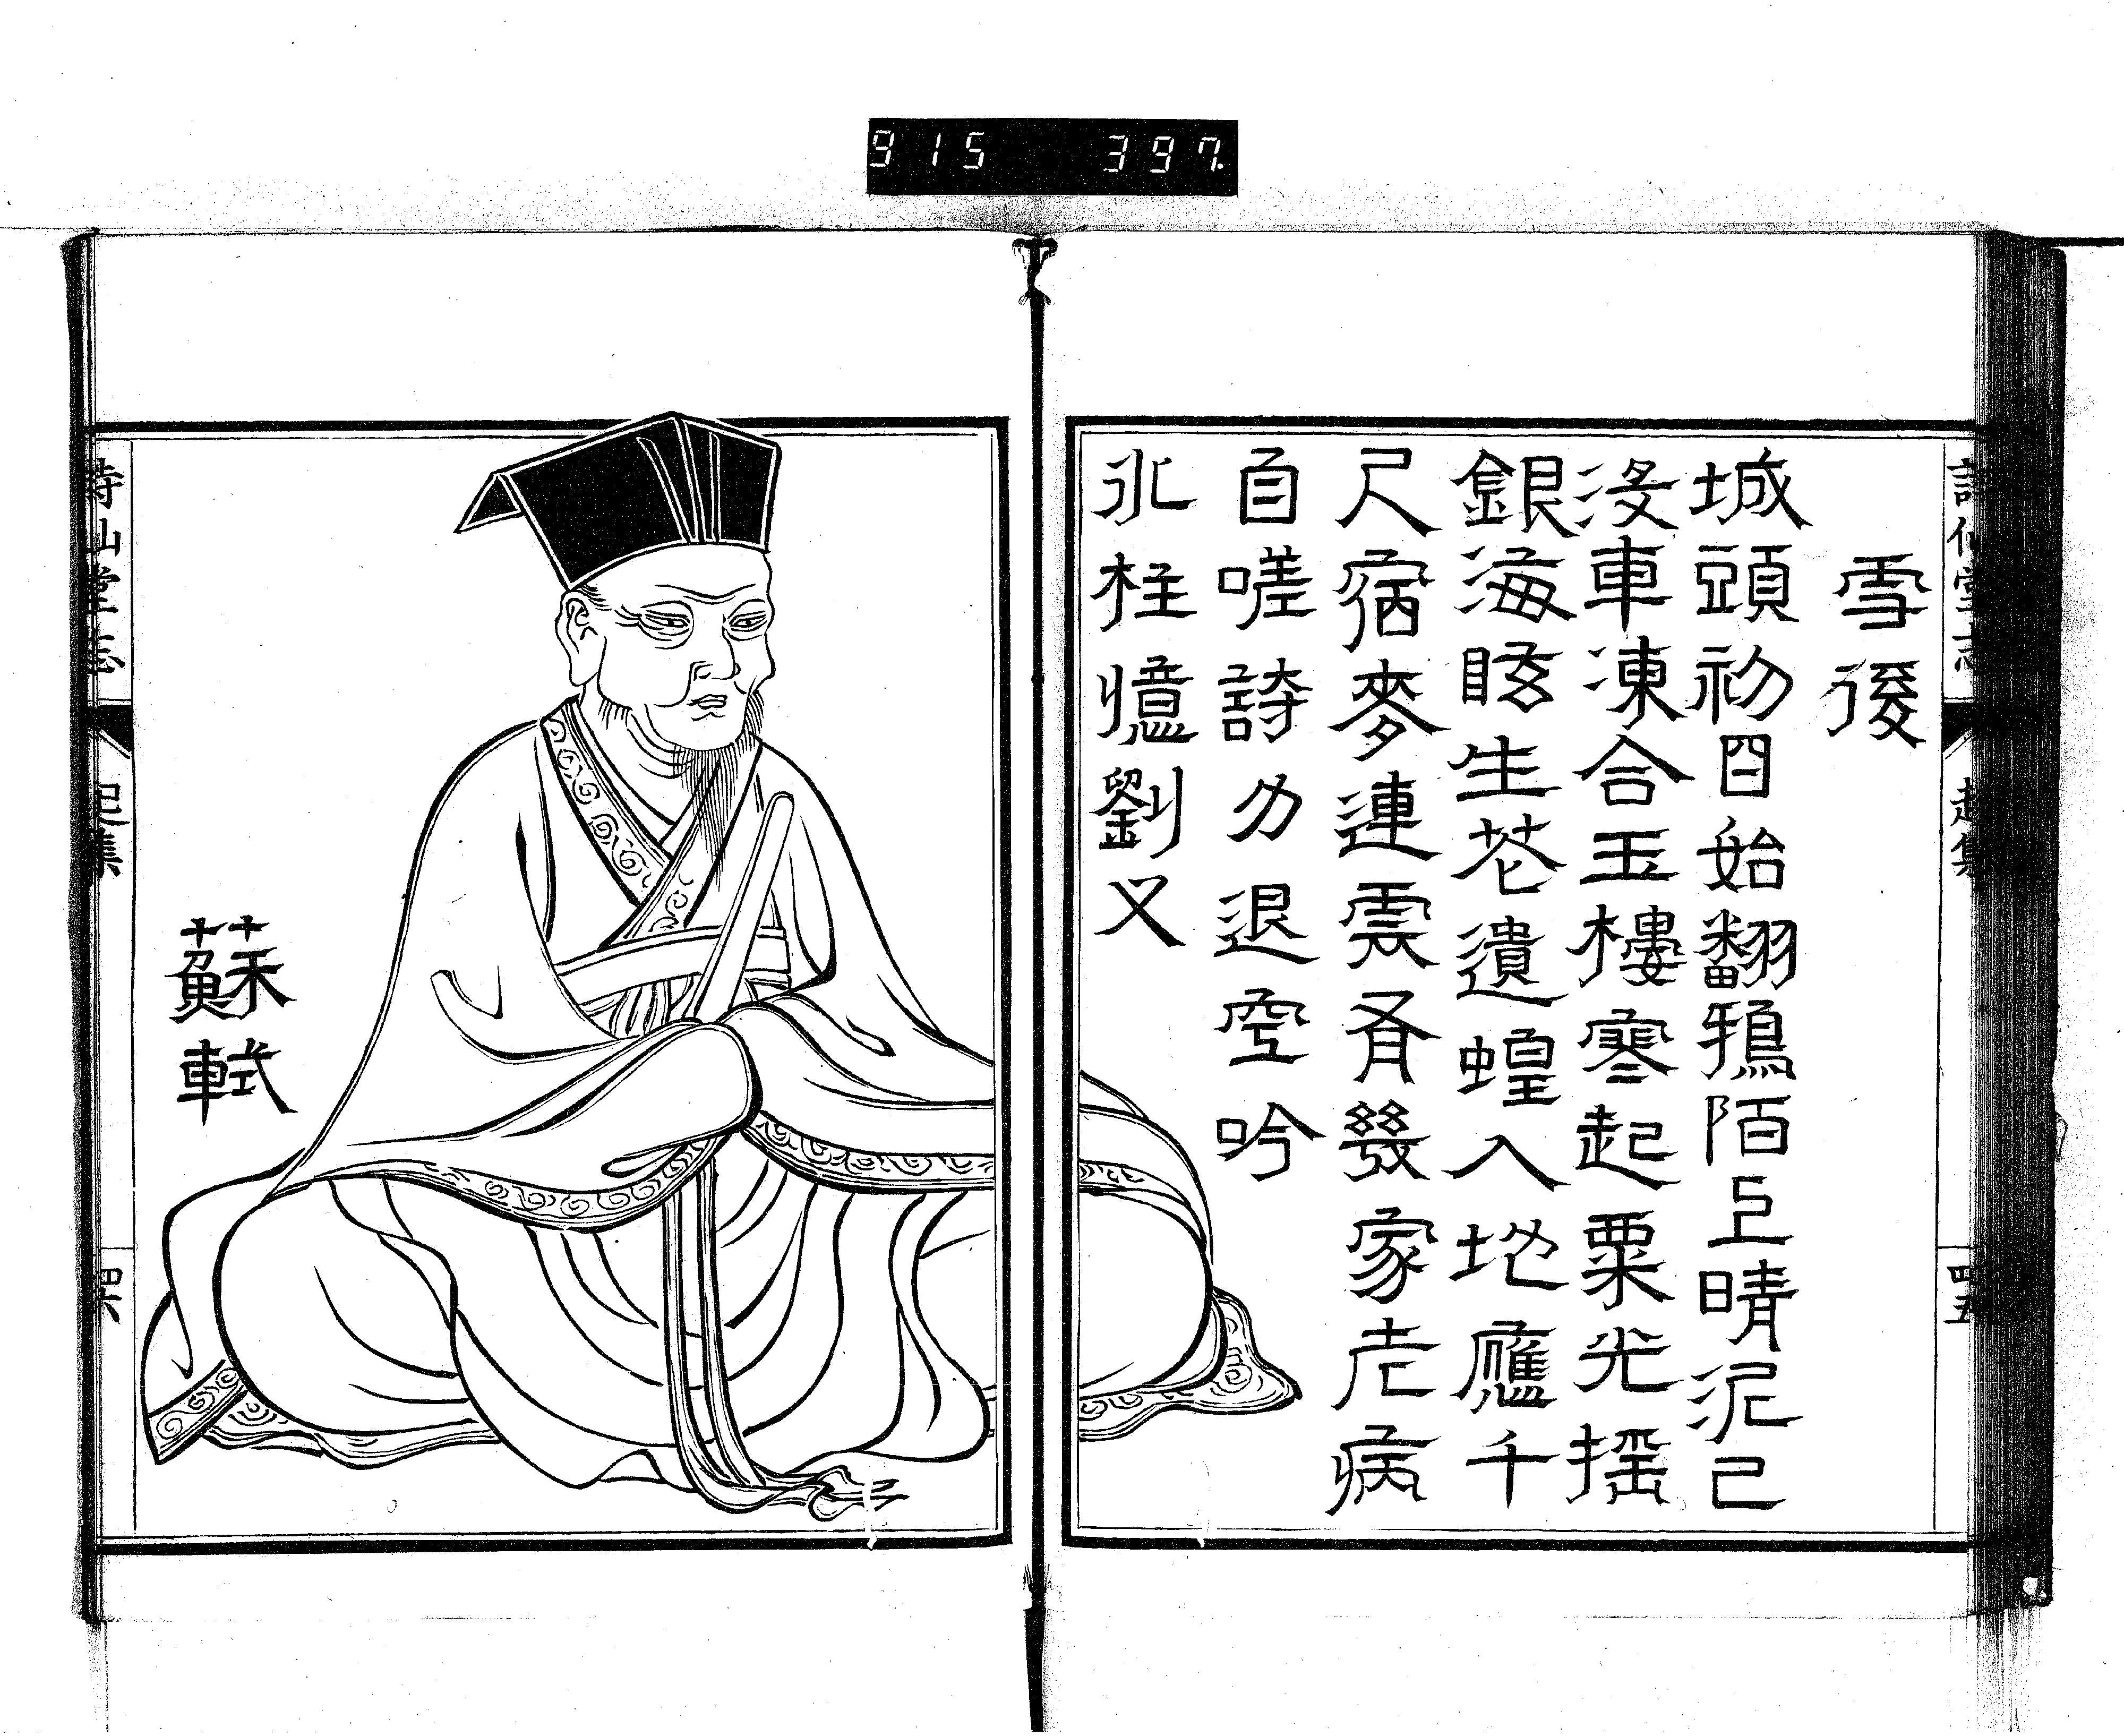 915 397.
雪後
城頭初日始翻鴉陌上晴泥已
沒車凍合玉樓寒起粟光搖
銀海眩生花遺蝗入地應千
尺宿麥連雲有幾家老病
自嗟詩力退空吟
氷柱憶劉叉
蘇軾
詩仙堂志
起集
四五
詩仙堂志
起集
四六